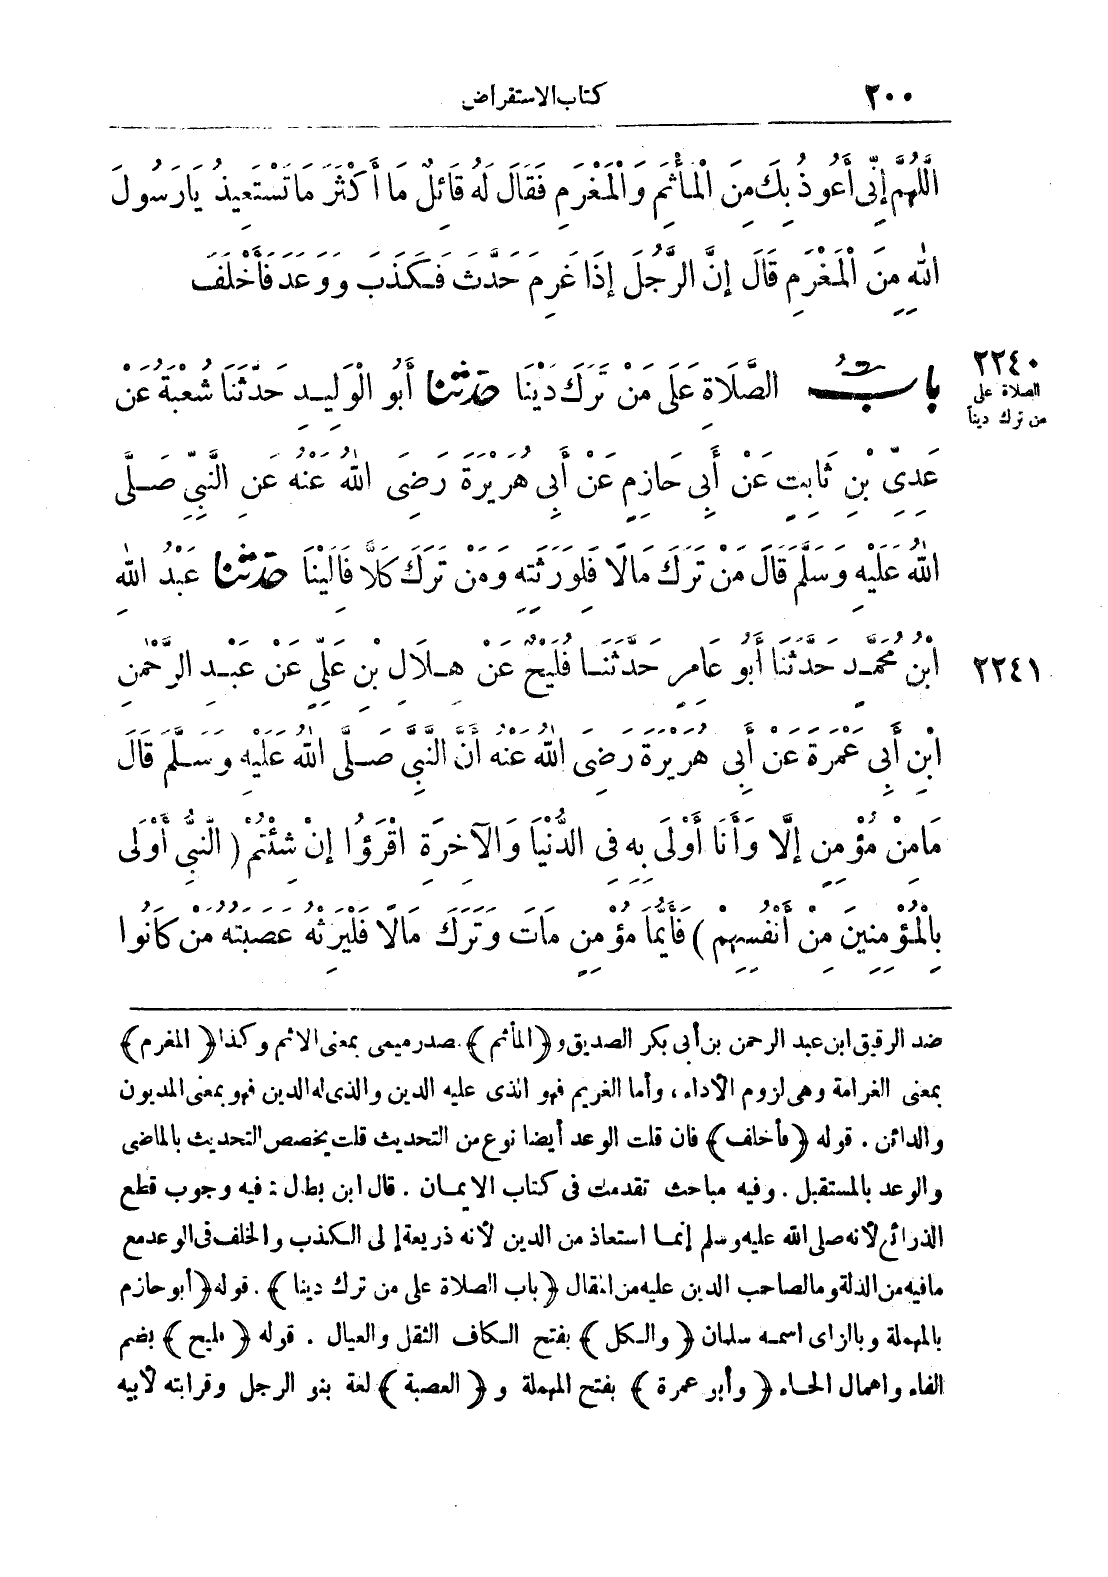 ٢٠٠ كتاب الاستقراض
اللَّهُمَّ إِنِّي أَعُوذُ بِكَ مِنَ الْمَأْثَمِ وَالْمَغْرَمِ فَقَالَ لَهُ قَائِلٌ مَا أَكْثَرَ مَا تَسْتَعِيذُ يَارَسُولَ
اللهِ مِنَ الْمَغْرَمِ قَالَ إِنَّ الرَّجُلَ إِذَا غَرِمَ حَدَّثَ فَكَذَبَ وَوَعَدَ فَأَخْلَفَ
٢٢٤٠
الصلاة على
من ترك ديناً
بابُ الصَّلَاةِ عَلَى مَنْ تَرَكَ دَيْنًا حدثنا أَبُو الْوَلِيدِ حَدَّثَنَا شُعْبَةُ عَنْ
عَدِيِّ بْنِ ثَابِتٍ عَنْ أَبِي حَازِمٍ عَنْ أَبِي هُرَيْرَةَ رَضِىَ اللهُ عَنْهُ عَنِ النَّبِيِّ صَلَّى
اللهُ عَلَيْهِ وَسَلَّمَ قَالَ مَنْ تَرَكَ مَالًا فَلِوَرَثَتِهِ وَمَنْ تَرَكَ كَلًّا فَإِلَيْنَا حدثنا عَبْدُ اللهِ
٢٢٤١ ابْنُ مُحَمَّدٍ حَدَّثَنَا أَبُو عَامِرٍ حَدَّثَنَا فُلَيْحٌ عَنْ هِلَالِ بْنِ عَلِيٍّ عَنْ عَبْدِ الرَّحْمٰنِ
ابْنِ أَبِي عَمْرَةَ عَنْ أَبِي هُرَيْرَةَ رَضِىَ اللهُ عَنْهُ أَنَّ النَّبِيَّ صَلَّى اللهُ عَلَيْهِ وَسَلَّمَ قَالَ
مَامِنْ مُؤْمِنٍ إِلَّا وَأَنَا أَوْلَى بِهِ فِي الدُّنْيَا وَالْآخِرَةِ اقْرَؤُا إِنْ شِئْتُمْ ( النَّبِيُّ أَوْلَى
بِالْمُؤْمِنِينَ مِنْ أَنْفُسِهِمْ ) فَأَيُّمَا مُؤْمِنٍ مَاتَ وَتَرَكَ مَالًا فَلْيَرِثْهُ عَصَبَتُهُ مَنْ كَانُوا
ضد الرقيق ابن عبد الرحمن بن أبى بكر الصديق و ﴿المأثم﴾ صدر ميمى بمعنى الاثم وكذا ﴿المغرم﴾
بمعنى الغرامة وهى لزوم الأداء ، وأما الغريم فهو الذى عليه الدين والذى له الدين فهو بمعنى المديون
والدائن . قوله ﴿فأخلف﴾ فان قلت الوعد أيضا نوع من التحديث قلت يخصص التحديث بالماضى
والوعد بالمستقبل . وفيه مباحث تقدمت فى كتاب الايمان . قال ابن بطال : فيه وجوب قطع
الذرائع لأنه صلى الله عليه وسلم إنما استعاذ من الدين لأنه ذريعة إلى الكذب والخلف فى الوعد مع
مافيه من الذلة وما لصاحب الدين عليه من المقال ﴿باب الصلاة على من ترك دينا﴾ . قوله ﴿أبو حازم
بالمهملة وبالزاى اسمه سلمان ﴿والكل﴾ بفتح الكاف الثقل والعيال . قوله ﴿فليح﴾ بضم
الفاء واهمال الحاء ﴿وأبو عمرة﴾ بفتح المهملة و ﴿العصبة﴾ لغة بنو الرجل وقرابته لأبيه